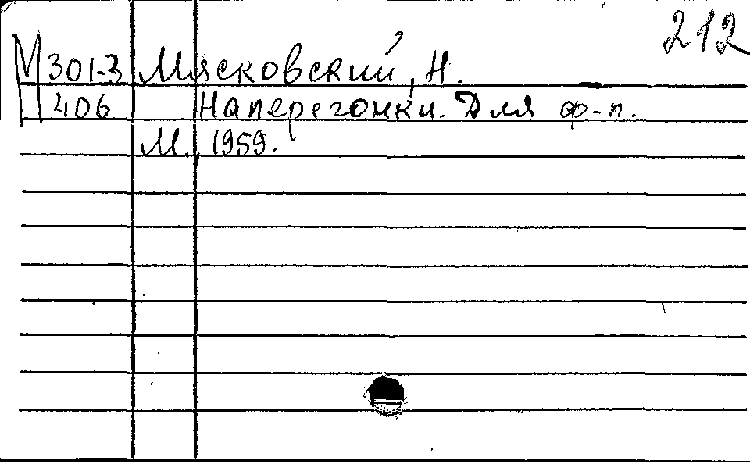 212
М 301-3 Мясковский, Н.
406 Наперегонки. Для ф-п.
М., 1959.